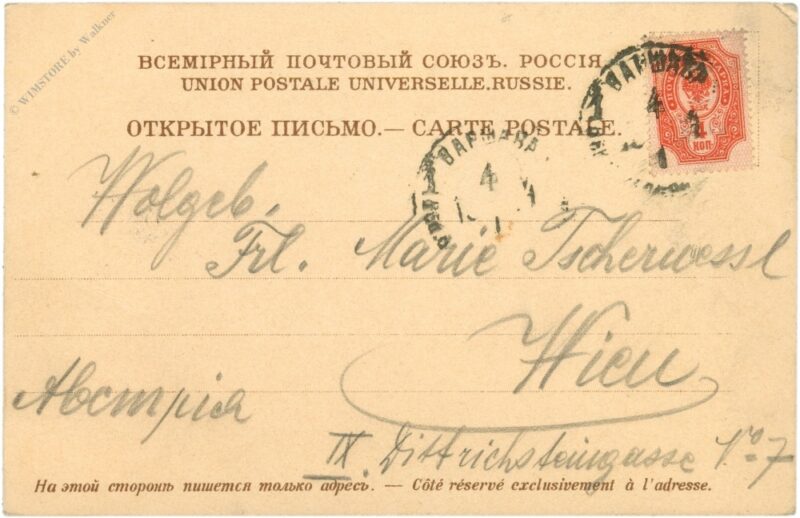 © WIMSTORE by Walkner
ВСЕМІРНЫЙ ПОЧТОВЫЙ СОЮЗЪ. РОССІЯ
UNION POSTALE UNIVERSELLE. RUSSIE.
ОТКРЫТОЕ ПИСЬМО. — CARTE POSTALE.
ВАРШАВА
4
1
ВАРШАВА
4
1
4
КОП
Wolgeb.
Frl. Marie Tscherwessl
Wien
Австрія
IX. Dittrichsteingasse No 7
На этой сторонѣ пишется только адресъ. — Côté réservé exclusivement à l'adresse.